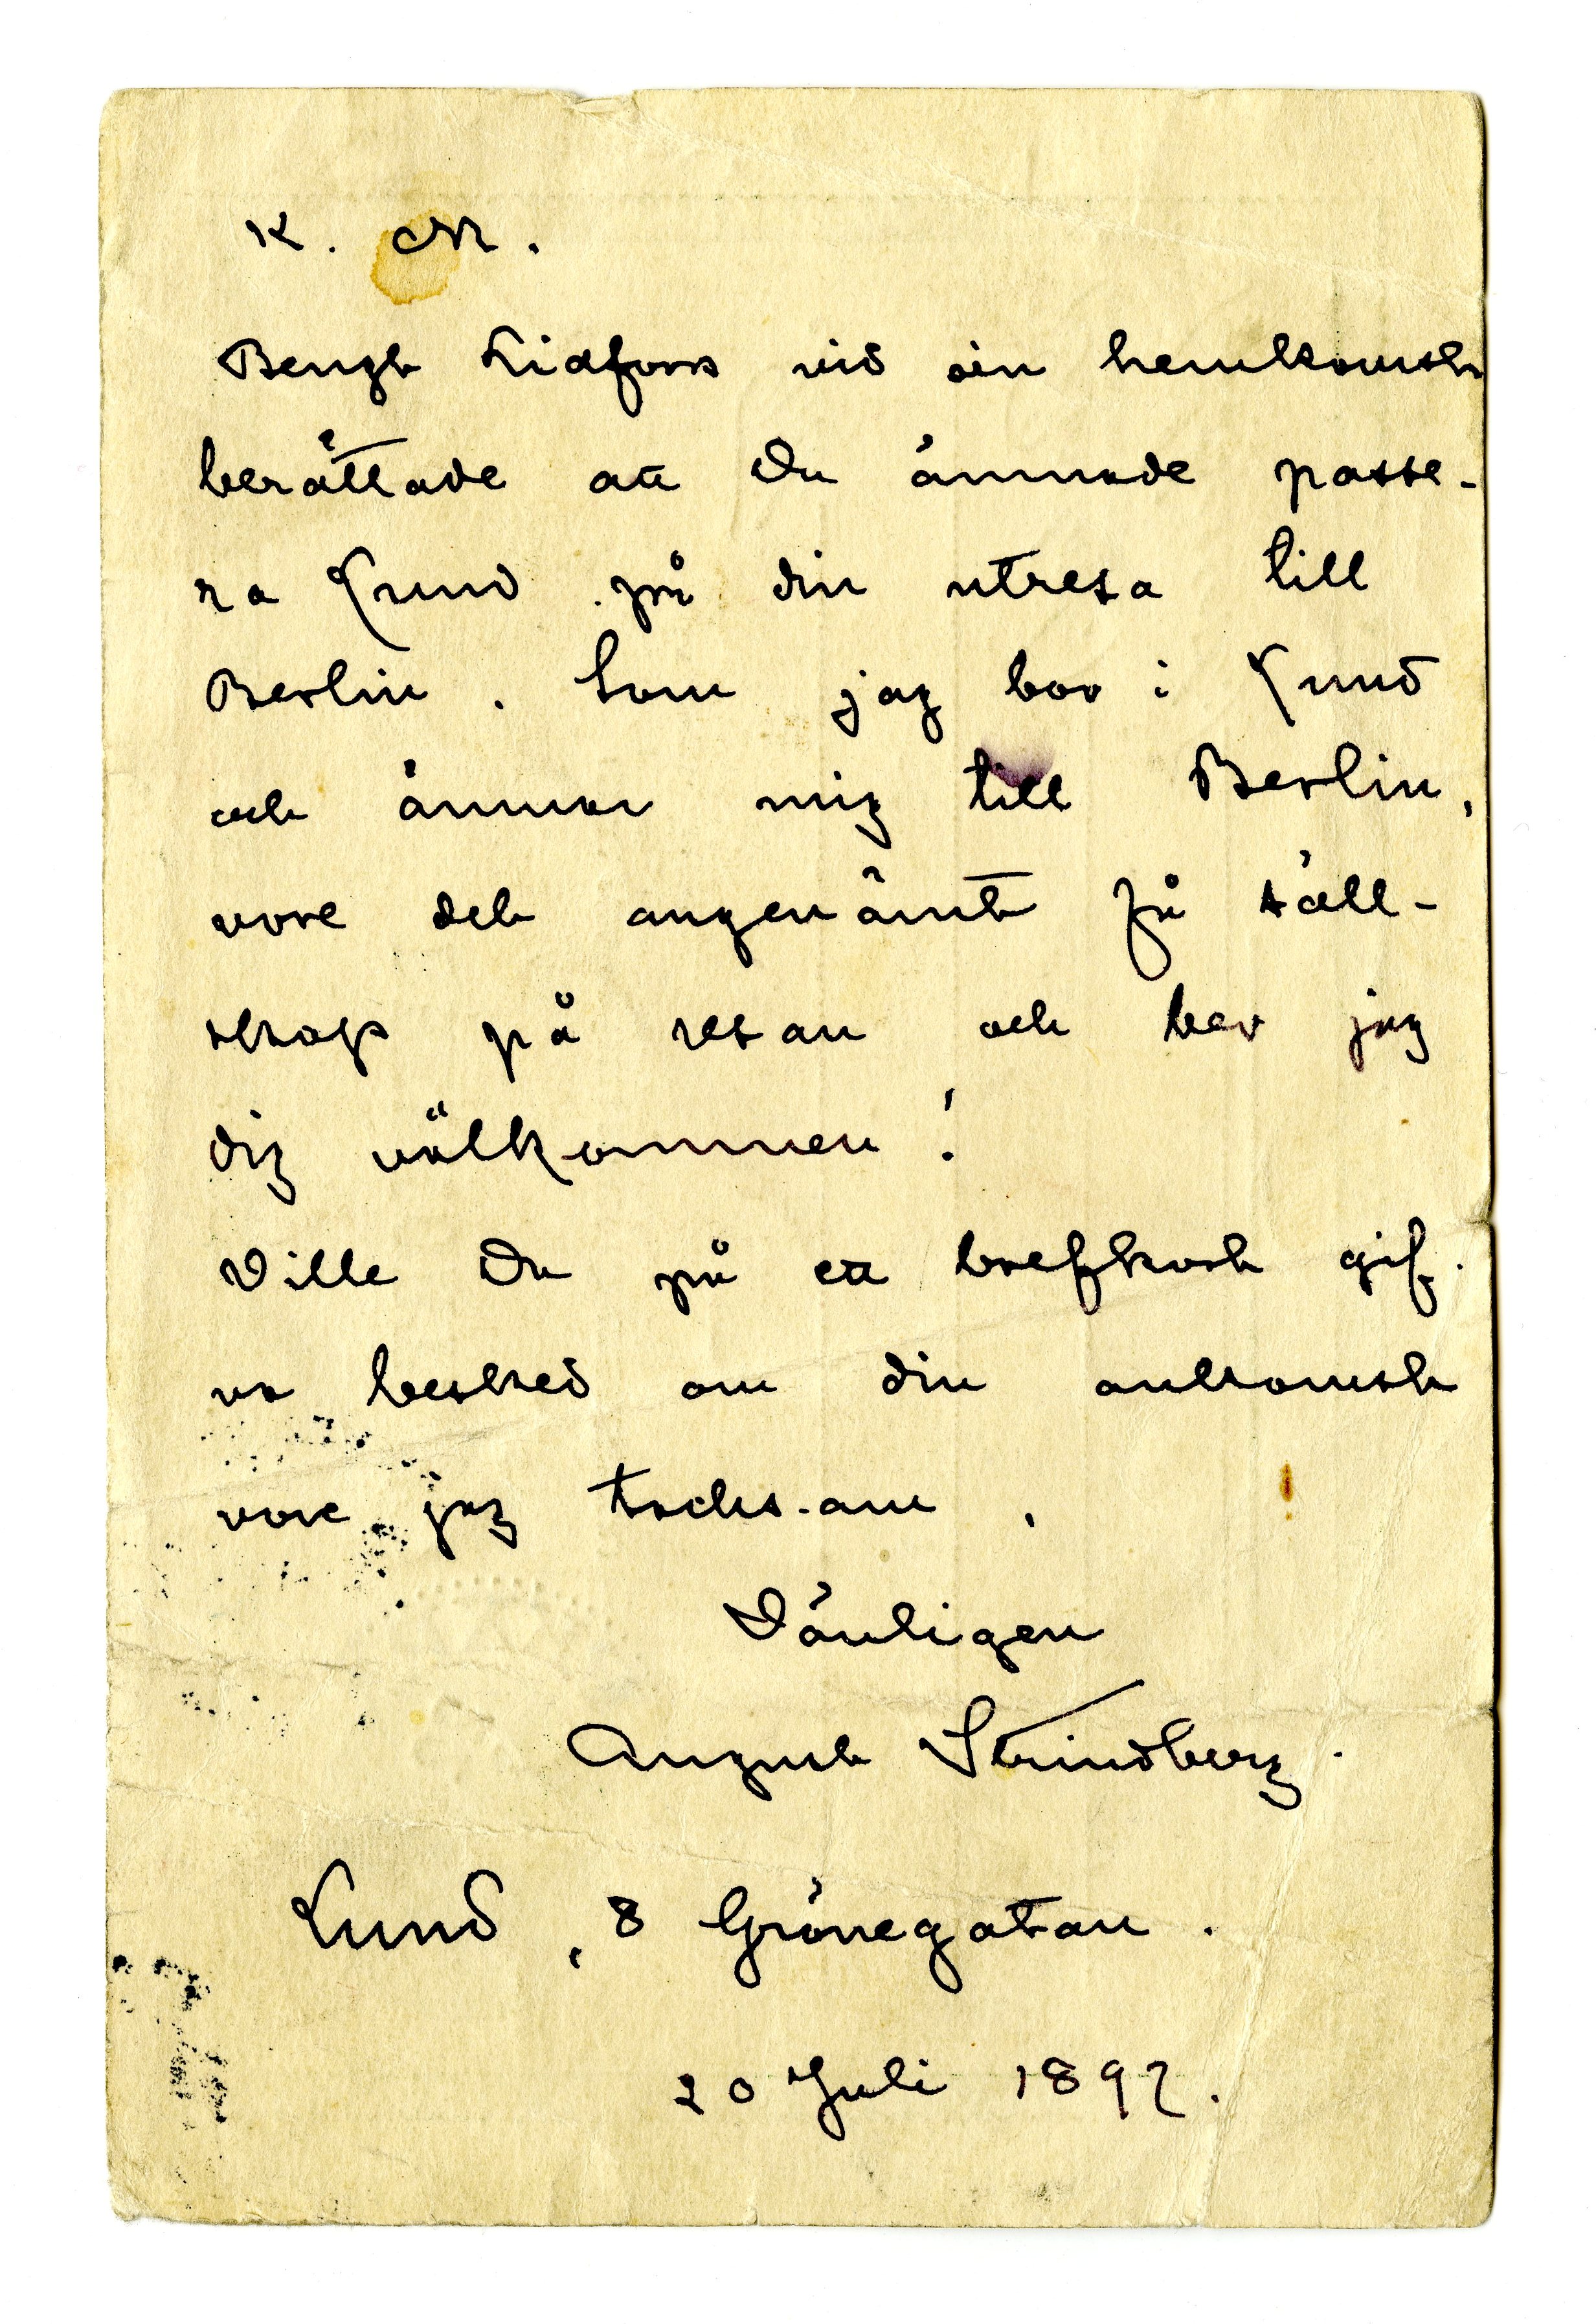 K. M.
Bengt Lidforss vid sin hemkomst
berättade att Du ämnade passe-
ra Lund på din utresa till
Berlin. Som jag bor i Lund
och ämnar mig till Berlin,
vore det angenämt få säll-
skap på resan och ber jag
dig välkommen!
Ville Du på ett brefkort gif-
va besked om din ankomst
vore jag tacksam.
Vänligen
August Strindberg.
Lund, 8 Grönegatan.
20 Juli 1897.